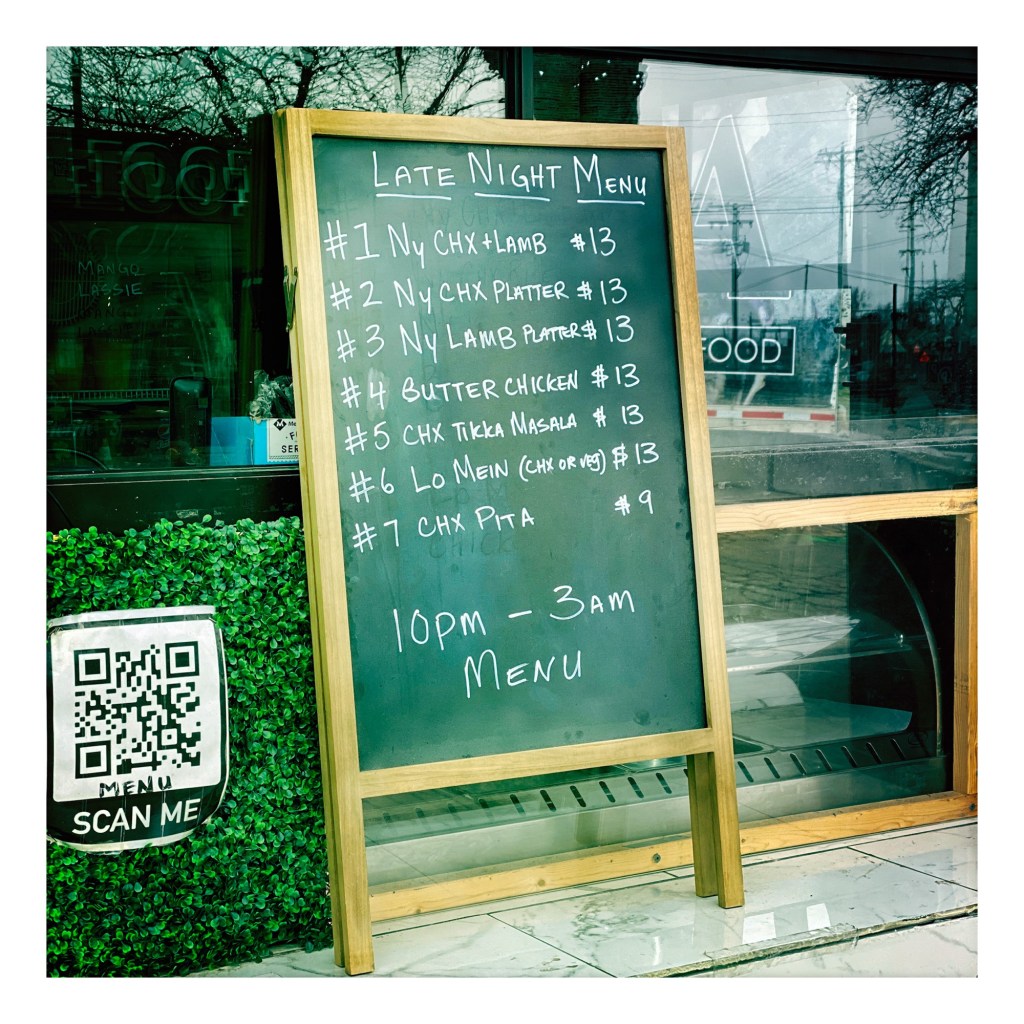 LATE NIGHT MENU
#1 NY CHX + LAMB $13
#2 NY CHX PLATTER $13
#3 NY LAMB PLATTER $13
#4 BUTTER CHICKEN $13
#5 CHX TIKKA MASALA $13
#6 LO MEIN (CHX OR VEG) $13
#7 CHX PITA $9
10PM - 3AM
MENU
FOOD
MANGO
LASSIE
A
FOOD
MENU
SCAN ME